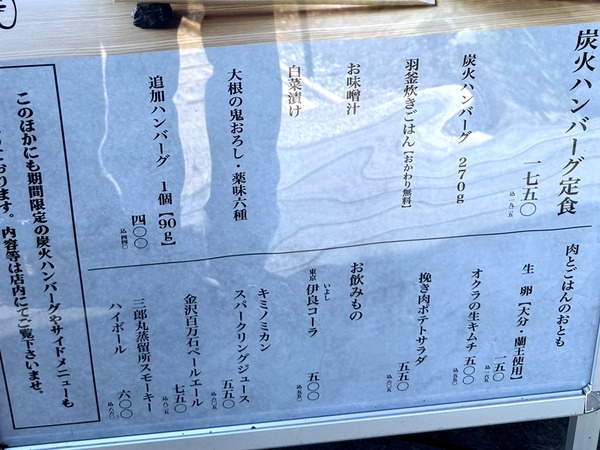 炭火ハンバーグ定食
一七五〇
込一九二五
炭火ハンバーグ 270g
羽釜炊きごはん【おかわり無料】
お味噌汁
白菜漬け
大根の鬼おろし・薬味六種
追加ハンバーグ 1個【90g】
四〇〇
込四四〇
肉とごはんのおとも
生 卵【大分・蘭王使用】
一五〇
込一六五
オクラの生キムチ 五〇〇
込五五〇
挽き肉ポテトサラダ
五五〇
込六〇五
お飲みもの
東京 伊良コーラ
いよし
五〇〇
込五五〇
キミノミカン
スパークリングジュース
五五〇
込六〇五
金沢百万石ペールエール
七五〇
込八二五
三郎丸蒸留所スモーキー
ハイボール
六〇〇
込六六〇
このほかにも期間限定の炭火ハンバーグやサイドメニューも
おります。内容等は店内にてご覧下さいませ。